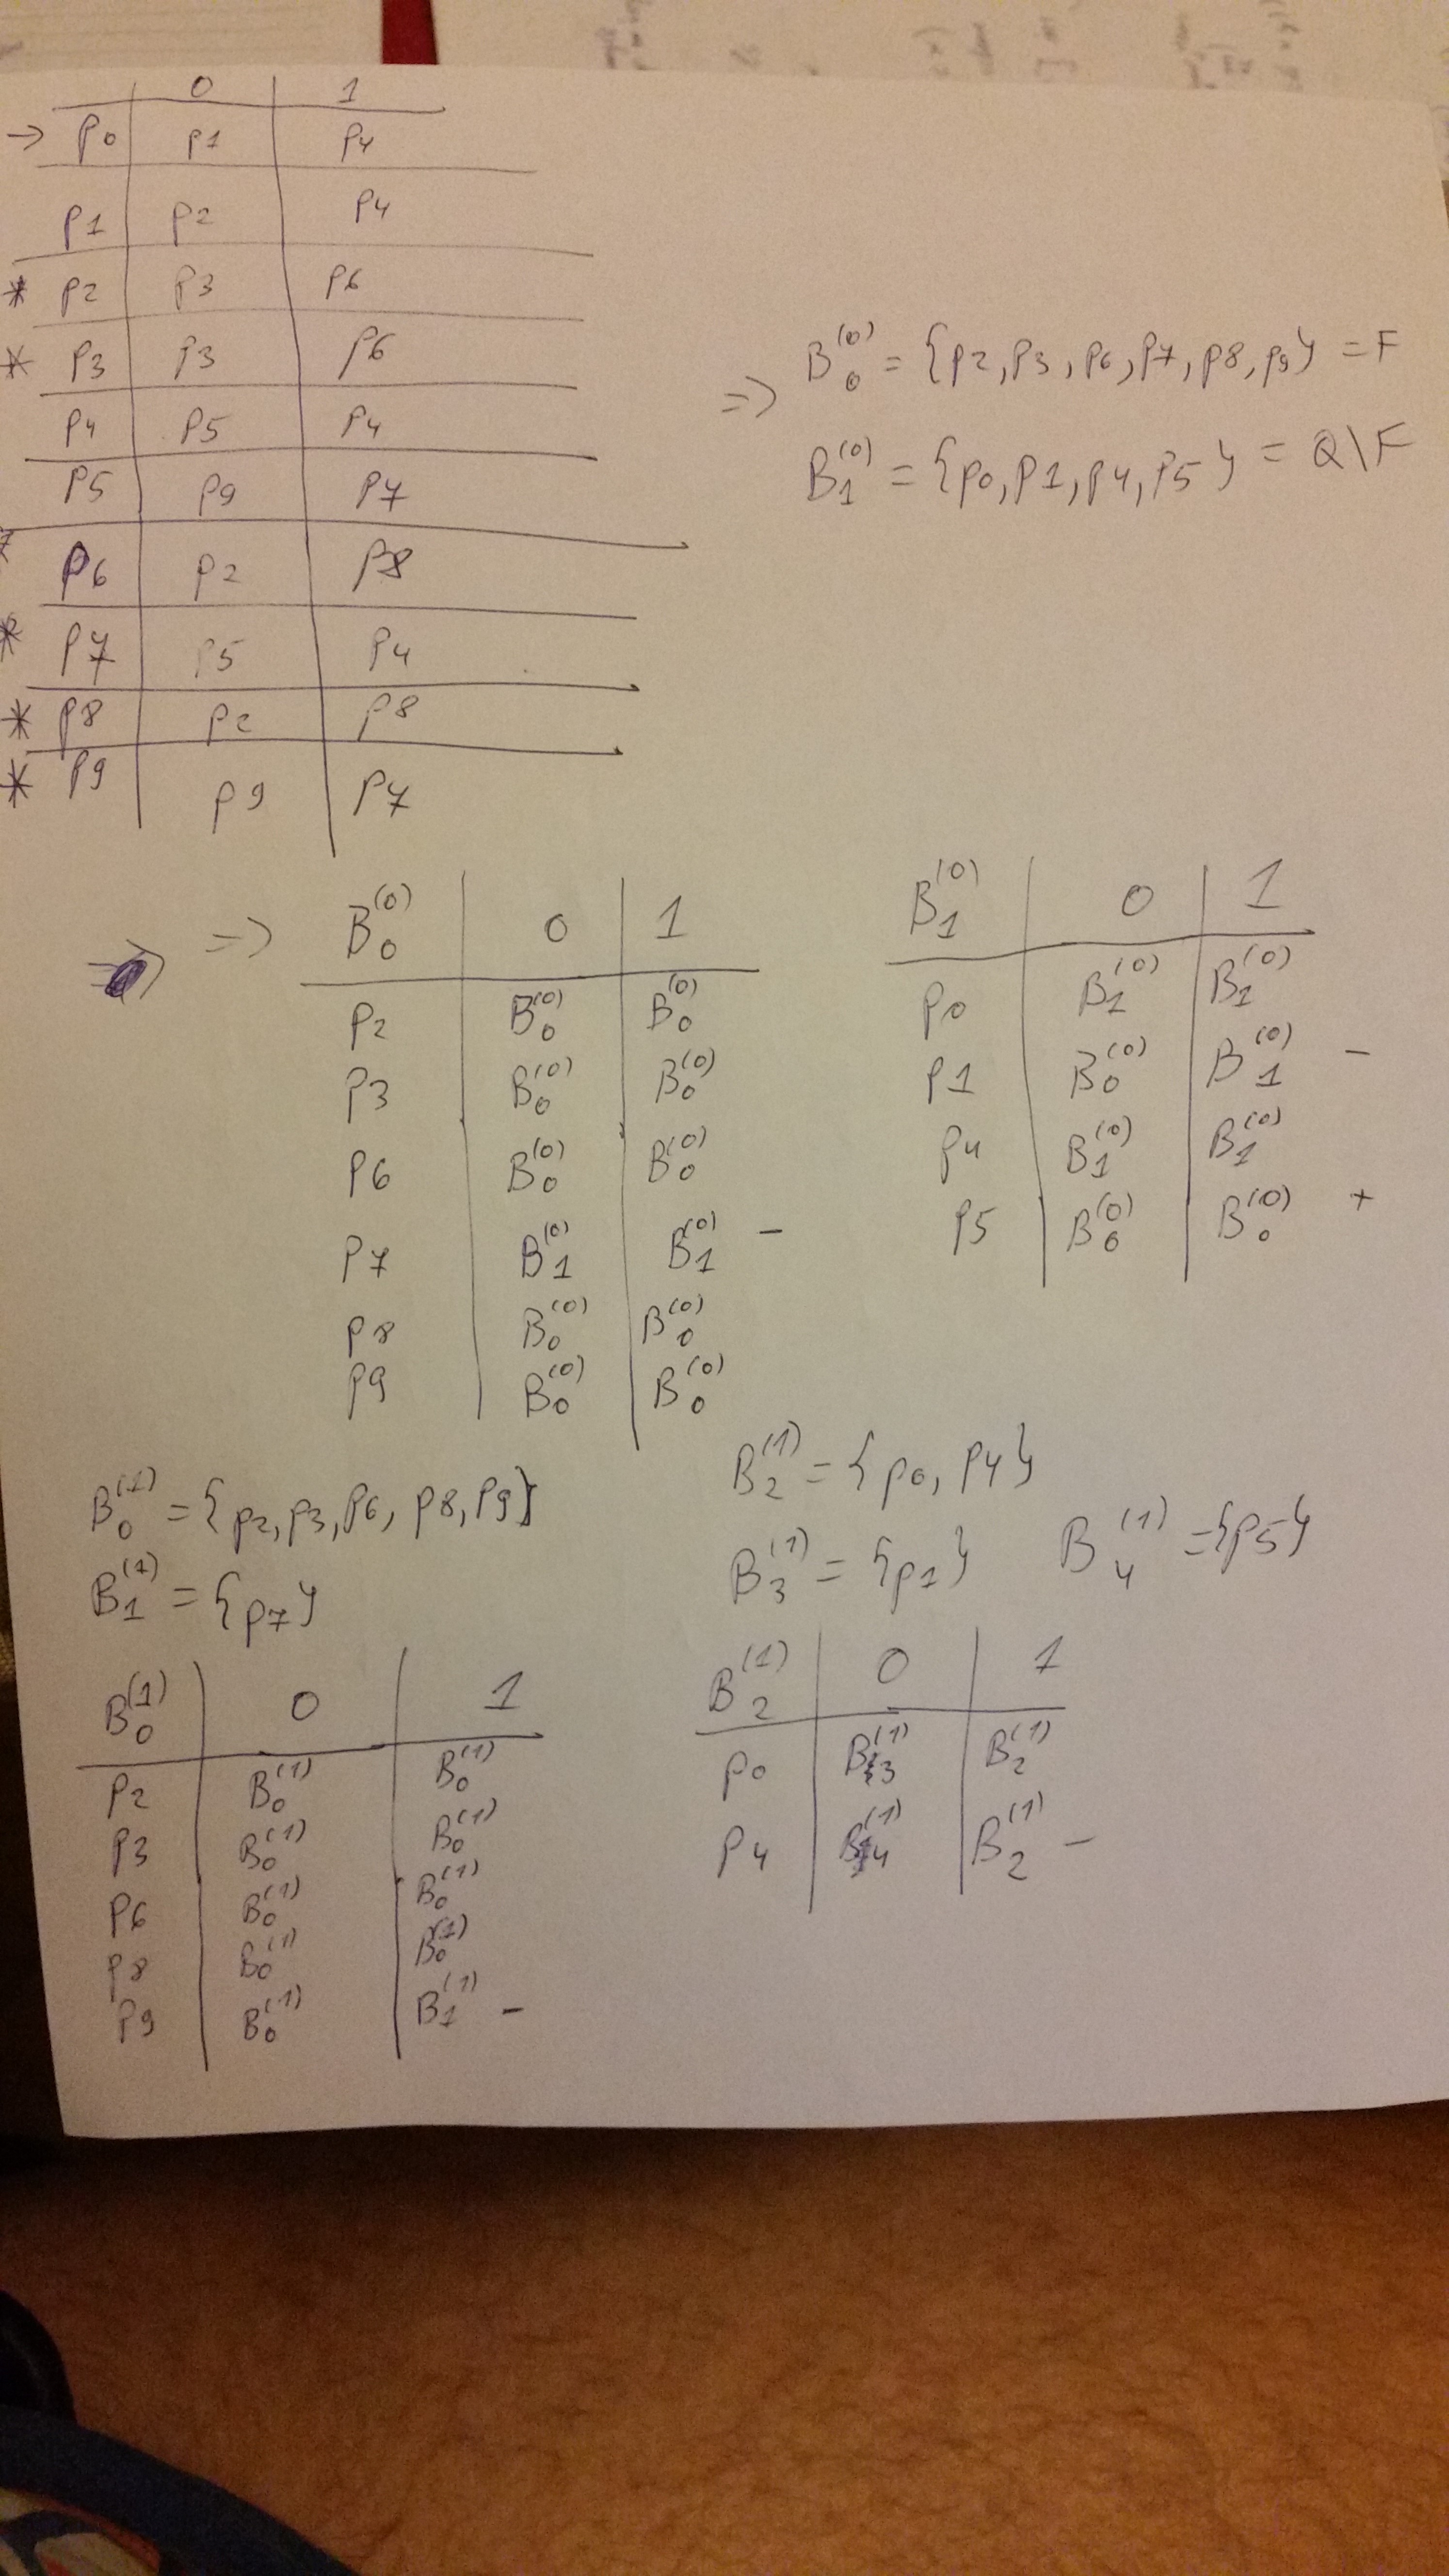 0 1
→ p0 p1 p4
p1 p2 p4
* p2 p3 p6
* p3 p3 p6
p4 p5 p4
p5 p9 p7
* p6 p2 p8
* p7 p5 p4
* p8 p2 p8
* p9 p9 p7
=> B₀⁽⁰⁾ = {p2, p3, p6, p7, p8, p9} = F
B₁⁽⁰⁾ = {p0, p1, p4, p5} = Q\F
=> B₀⁽⁰⁾ 0 1
p2 B₀⁽⁰⁾ B₀⁽⁰⁾
p3 B₀⁽⁰⁾ B₀⁽⁰⁾
p6 B₀⁽⁰⁾ B₀⁽⁰⁾
p7 B₁⁽⁰⁾ B₁⁽⁰⁾ −
p8 B₀⁽⁰⁾ B₀⁽⁰⁾
p9 B₀⁽⁰⁾ B₀⁽⁰⁾
B₁⁽⁰⁾ 0 1
p0 B₁⁽⁰⁾ B₁⁽⁰⁾
p1 B₀⁽⁰⁾ B₁⁽⁰⁾ −
p4 B₁⁽⁰⁾ B₁⁽⁰⁾
p5 B₀⁽⁰⁾ B₀⁽⁰⁾ +
B₀⁽¹⁾ = {p2, p3, p6, p8, p9}
B₁⁽¹⁾ = {p7}
B₂⁽¹⁾ = {p0, p4}
B₃⁽¹⁾ = {p1} B₄⁽¹⁾ = {p5}
B₀⁽¹⁾ 0 1
p2 B₀⁽¹⁾ B₀⁽¹⁾
p3 B₀⁽¹⁾ B₀⁽¹⁾
p6 B₀⁽¹⁾ B₀⁽¹⁾
p8 B₀⁽¹⁾ B₀⁽¹⁾
p9 B₀⁽¹⁾ B₁⁽¹⁾ −
B₂⁽¹⁾ 0 1
p0 B₃⁽¹⁾ B₂⁽¹⁾
p4 B₄⁽¹⁾ B₂⁽¹⁾ −